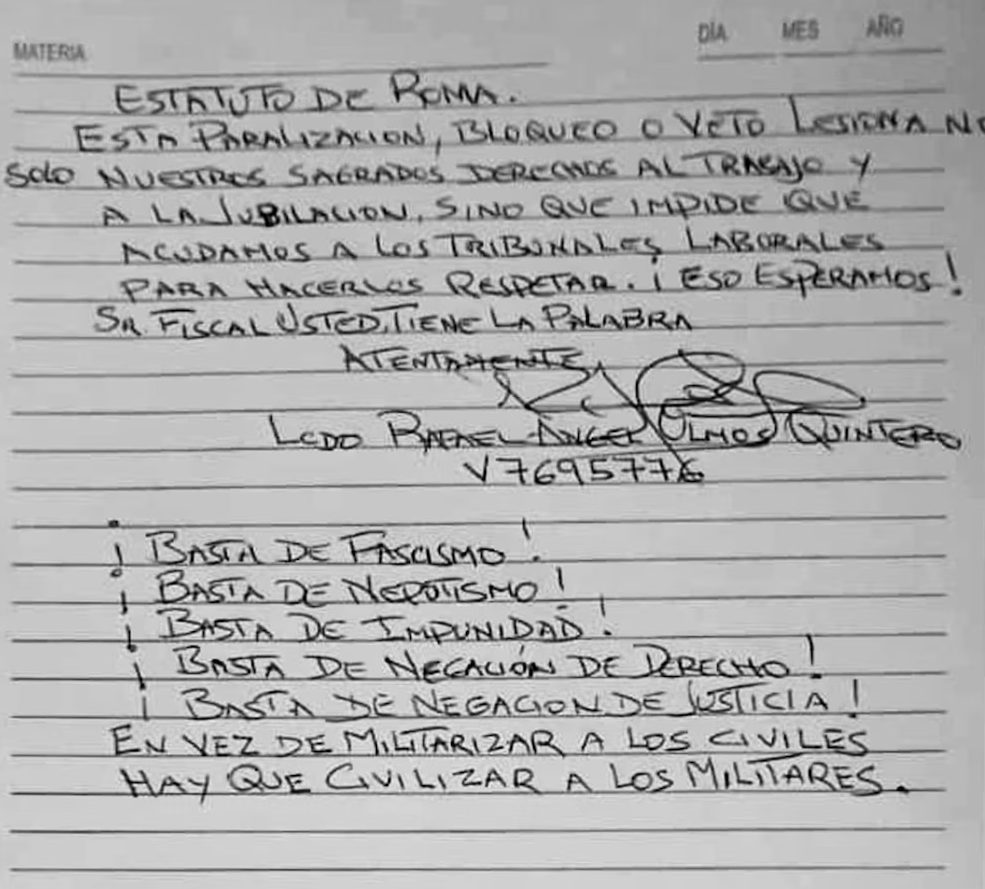 MATERIA
DÍA MES AÑO
ESTATUTO DE ROMA.
ESTA PARALIZACION, BLOQUEO O VETO LESIONA NO
SOLO NUESTROS SAGRADOS DERECHOS AL TRABAJO Y
A LA JUBILACION, SINO QUE IMPIDE QUE
ACUDAMOS A LOS TRIBUNALES LABORALES
PARA HACERLOS RESPETAR. ¡ ESO ESPERAMOS!
SR. FISCAL USTED, TIENE LA PALABRA
ATENTAMENTE,
LCDO RAFAEL ÁNGEL OLMOS QUINTERO
V7695776
¡ BASTA DE FASCISMO!
¡ BASTA DE NEPOTISMO!
¡ BASTA DE IMPUNIDAD!
¡ BASTA DE NEGACIÓN DE DERECHO!
¡ BASTA DE NEGACION DE JUSTICIA!
EN VEZ DE MILITARIZAR A LOS CIVILES
HAY QUE CIVILIZAR A LOS MILITARES.